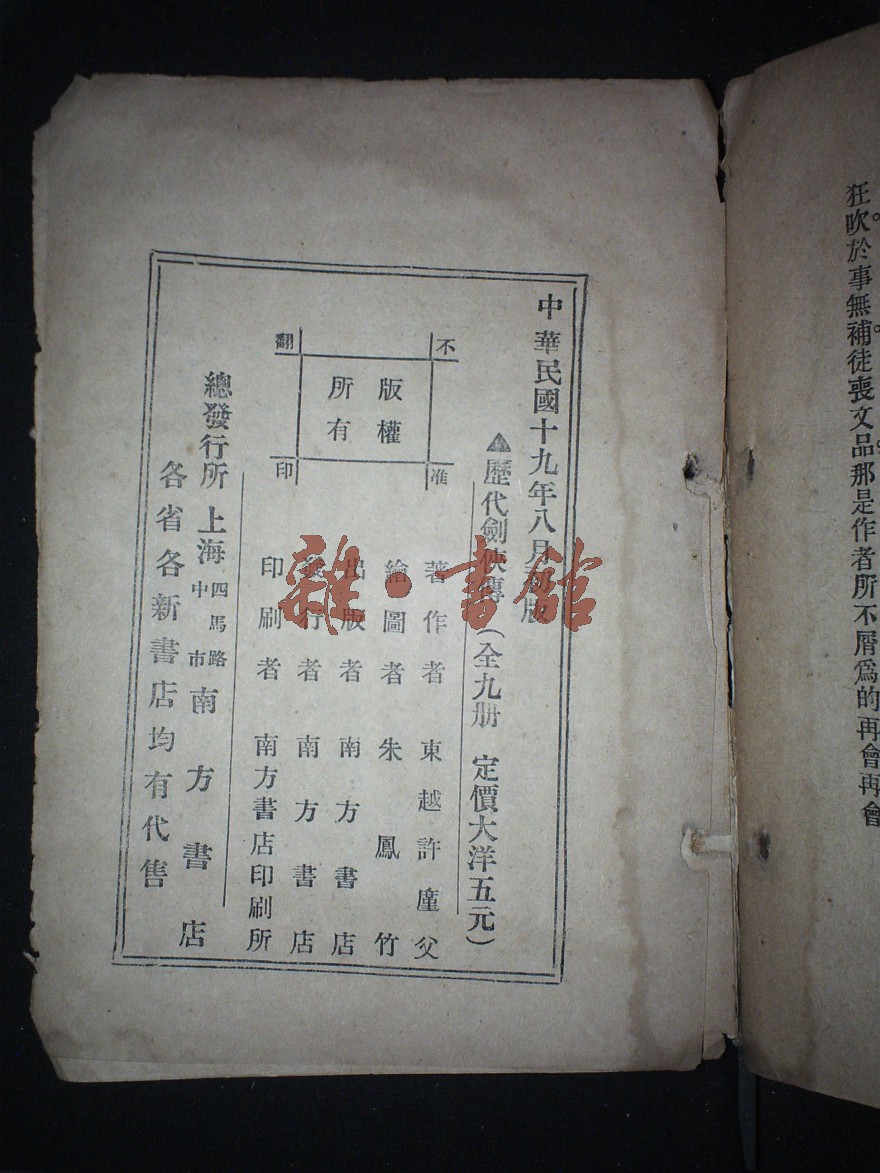 狂吹。於事無補。徒喪文品。那是作者所不屑爲的再會再會
中華民國十九年八月初版
▲歷代劍俠傳（全九册 定價大洋五元）
不准翻印
版權所有
著作者 東越許廑父
繪圖者 朱鳳竹
出版者 南方書店
發行者 南方書店
印刷者 南方書店印刷所
總發行所 上海四馬路中市 南方書店
各省各新書店均有代售
雜·書館